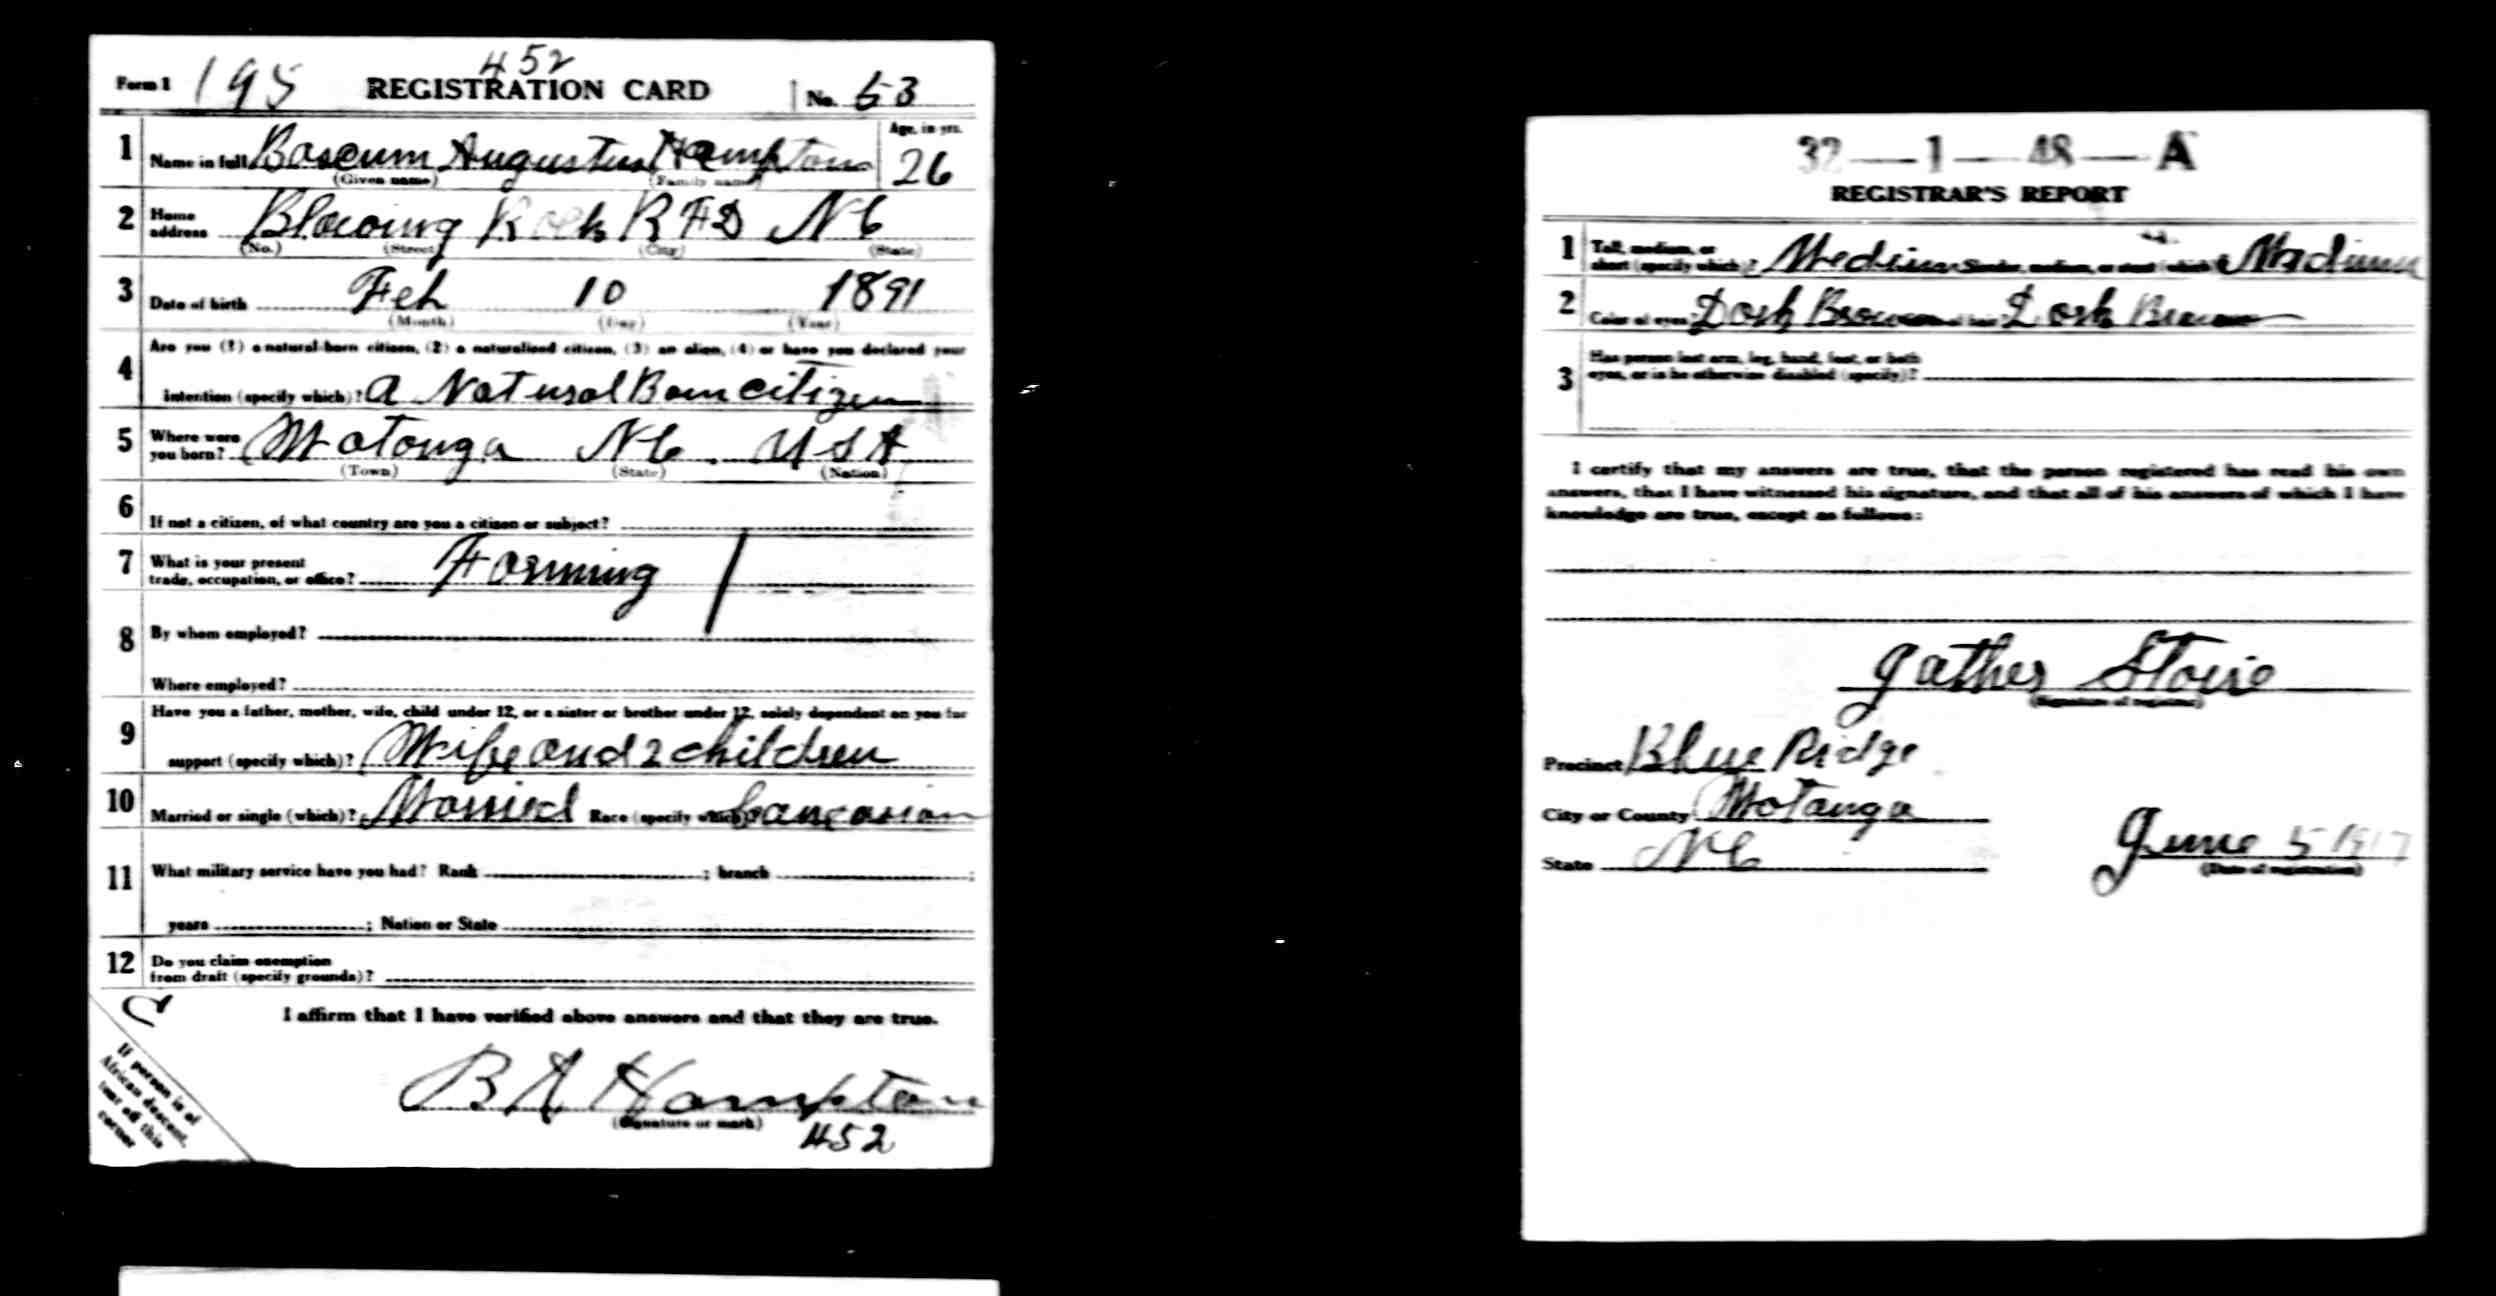 452
Form 1 195 REGISTRATION CARD No. 53
1 Name in full Bascum Augustus Hampton Age, in yrs. 26
(Given name) (Family name)
2 Home address Blowing Rock R F D N C
(No.) (Street) (City) (State)
3 Date of birth Feb 10 1891
(Month) (Day) (Year)
4 Are you (1) a natural-born citizen, (2) a naturalized citizen, (3) an alien, (4) or have you declared your
intention (specify which)? a Natural Born citizen
5 Where were you born? Watonga N C. U S A
(Town) (State) (Nation)
6 If not a citizen, of what country are you a citizen or subject?
7 What is your present
trade, occupation, or office? Farming
8 By whom employed?
Where employed?
9 Have you a father, mother, wife, child under 12, or a sister or brother under 12, solely dependent on you for
support (specify which)? Wife and 2 children
10 Married or single (which)? Married Race (specify which)? Caucasian
11 What military service have you had? Rank ; branch ;
years ; Nation or State
12 Do you claim exemption
from draft (specify grounds)?
I affirm that I have verified above answers and that they are true.
B A Hampton
(Signature or mark)
452
If person is of
African descent,
tear off this
corner
32—1—48—A
REGISTRAR'S REPORT
1 Tall, medium, or
short (specify which)? Medium Slender, medium, or stout (which)? Medium
2 Color of eyes? Dark Brown Color of hair? Dark Brown
3 Has person lost arm, leg, hand, foot, or both
eyes, or is he otherwise disabled (specify)?
I certify that my answers are true, that the person registered has read his own
answers, that I have witnessed his signature, and that all of his answers of which I have
knowledge are true, except as follows:
Gather
(Signature of registrar)
Precinct Blue Ridge
City or County Watanga
State N C
June 5 1917
(Date of registration)